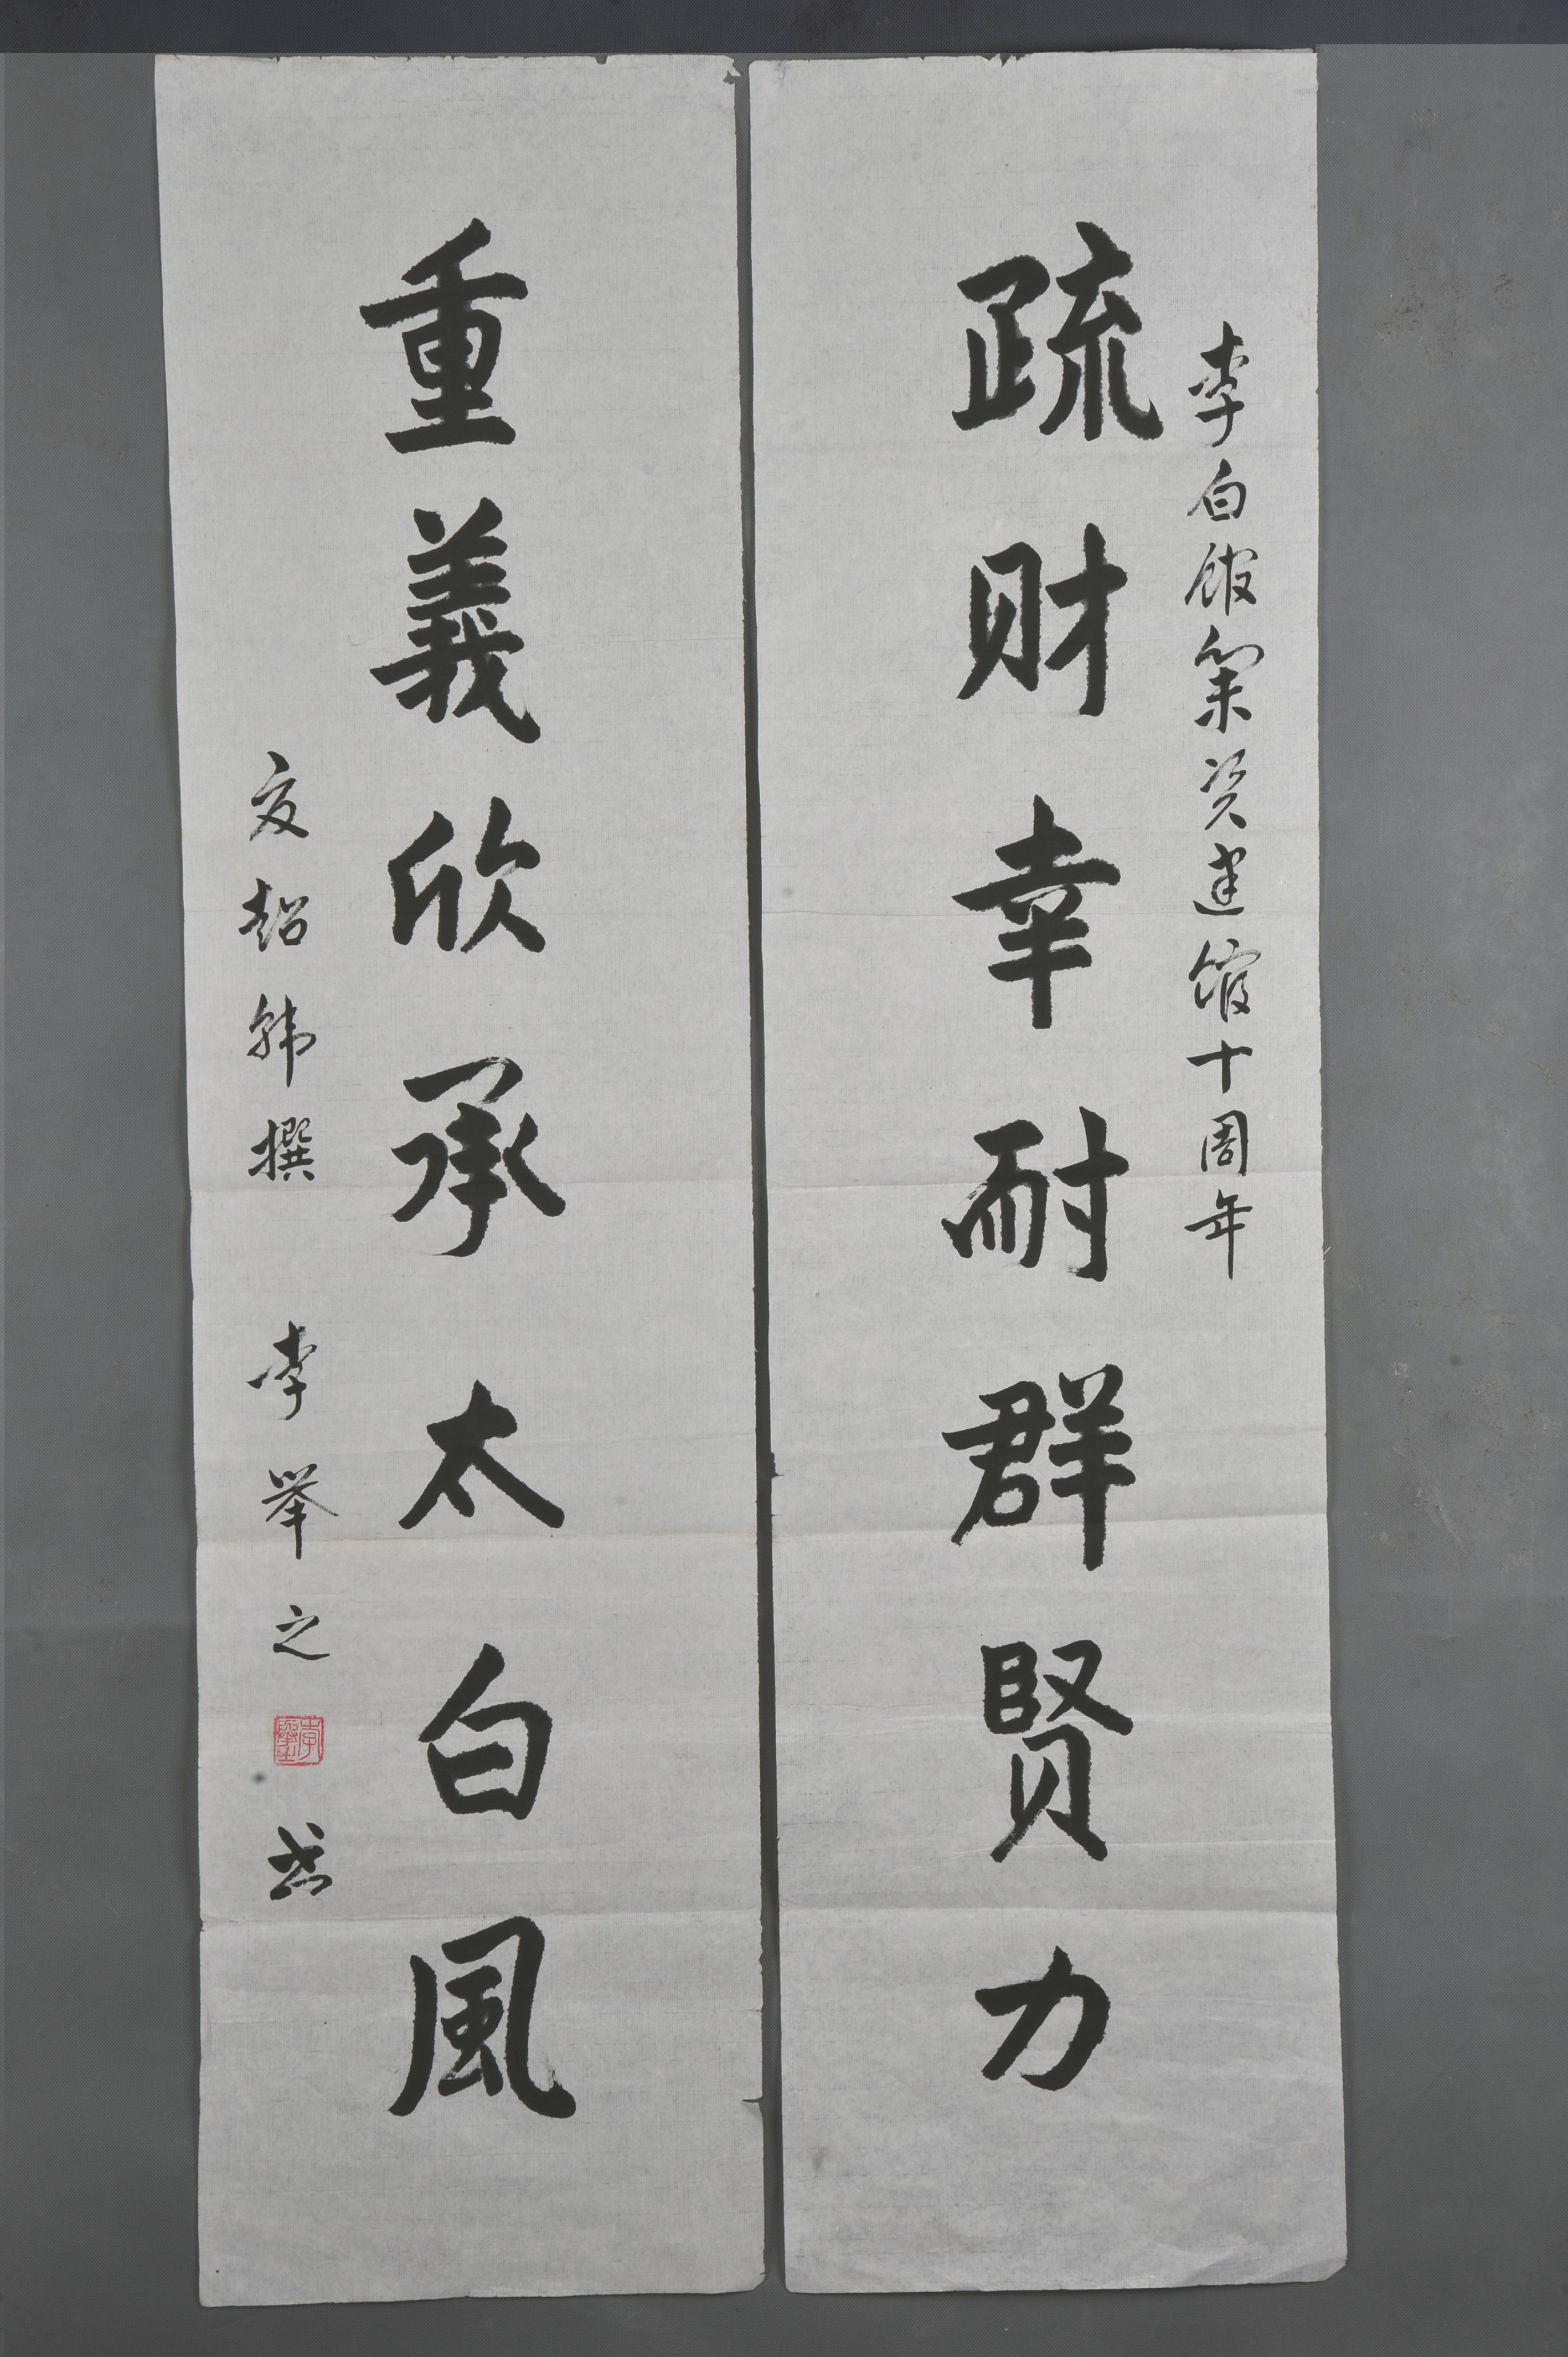 李白館資建館十周年
疏财幸耐群賢力
重義欣承太白風
超韩撰 李举之书